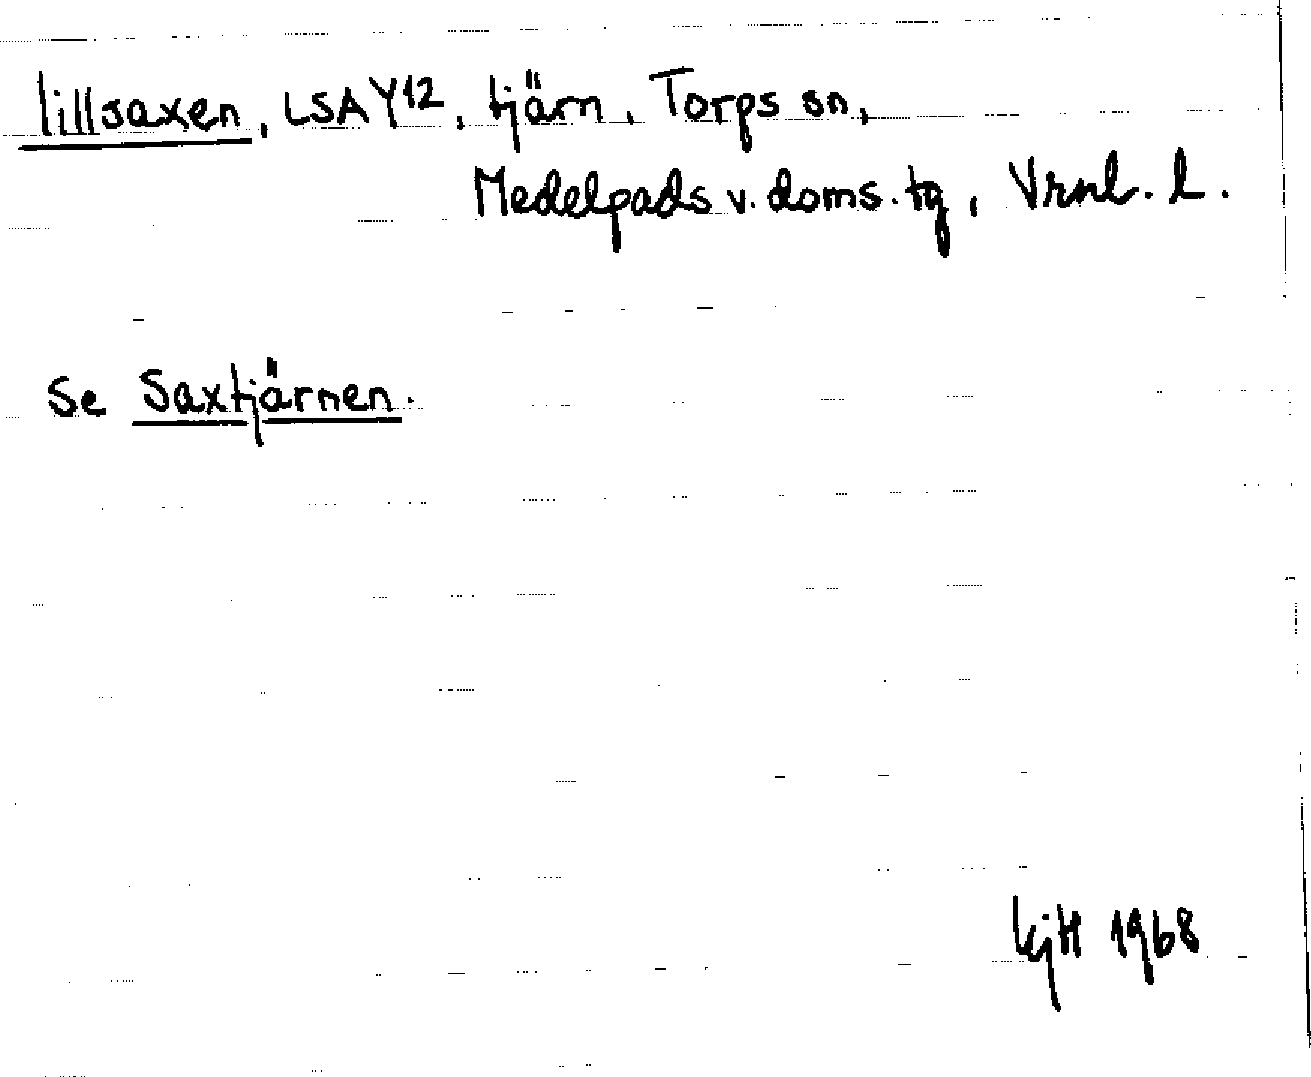 lillsaxen, LSA Y12, tjärn, Torps sn,
Medelpads v. doms. tg, Vrnl. l.
Se Saxtjärnen.
KjH 1968